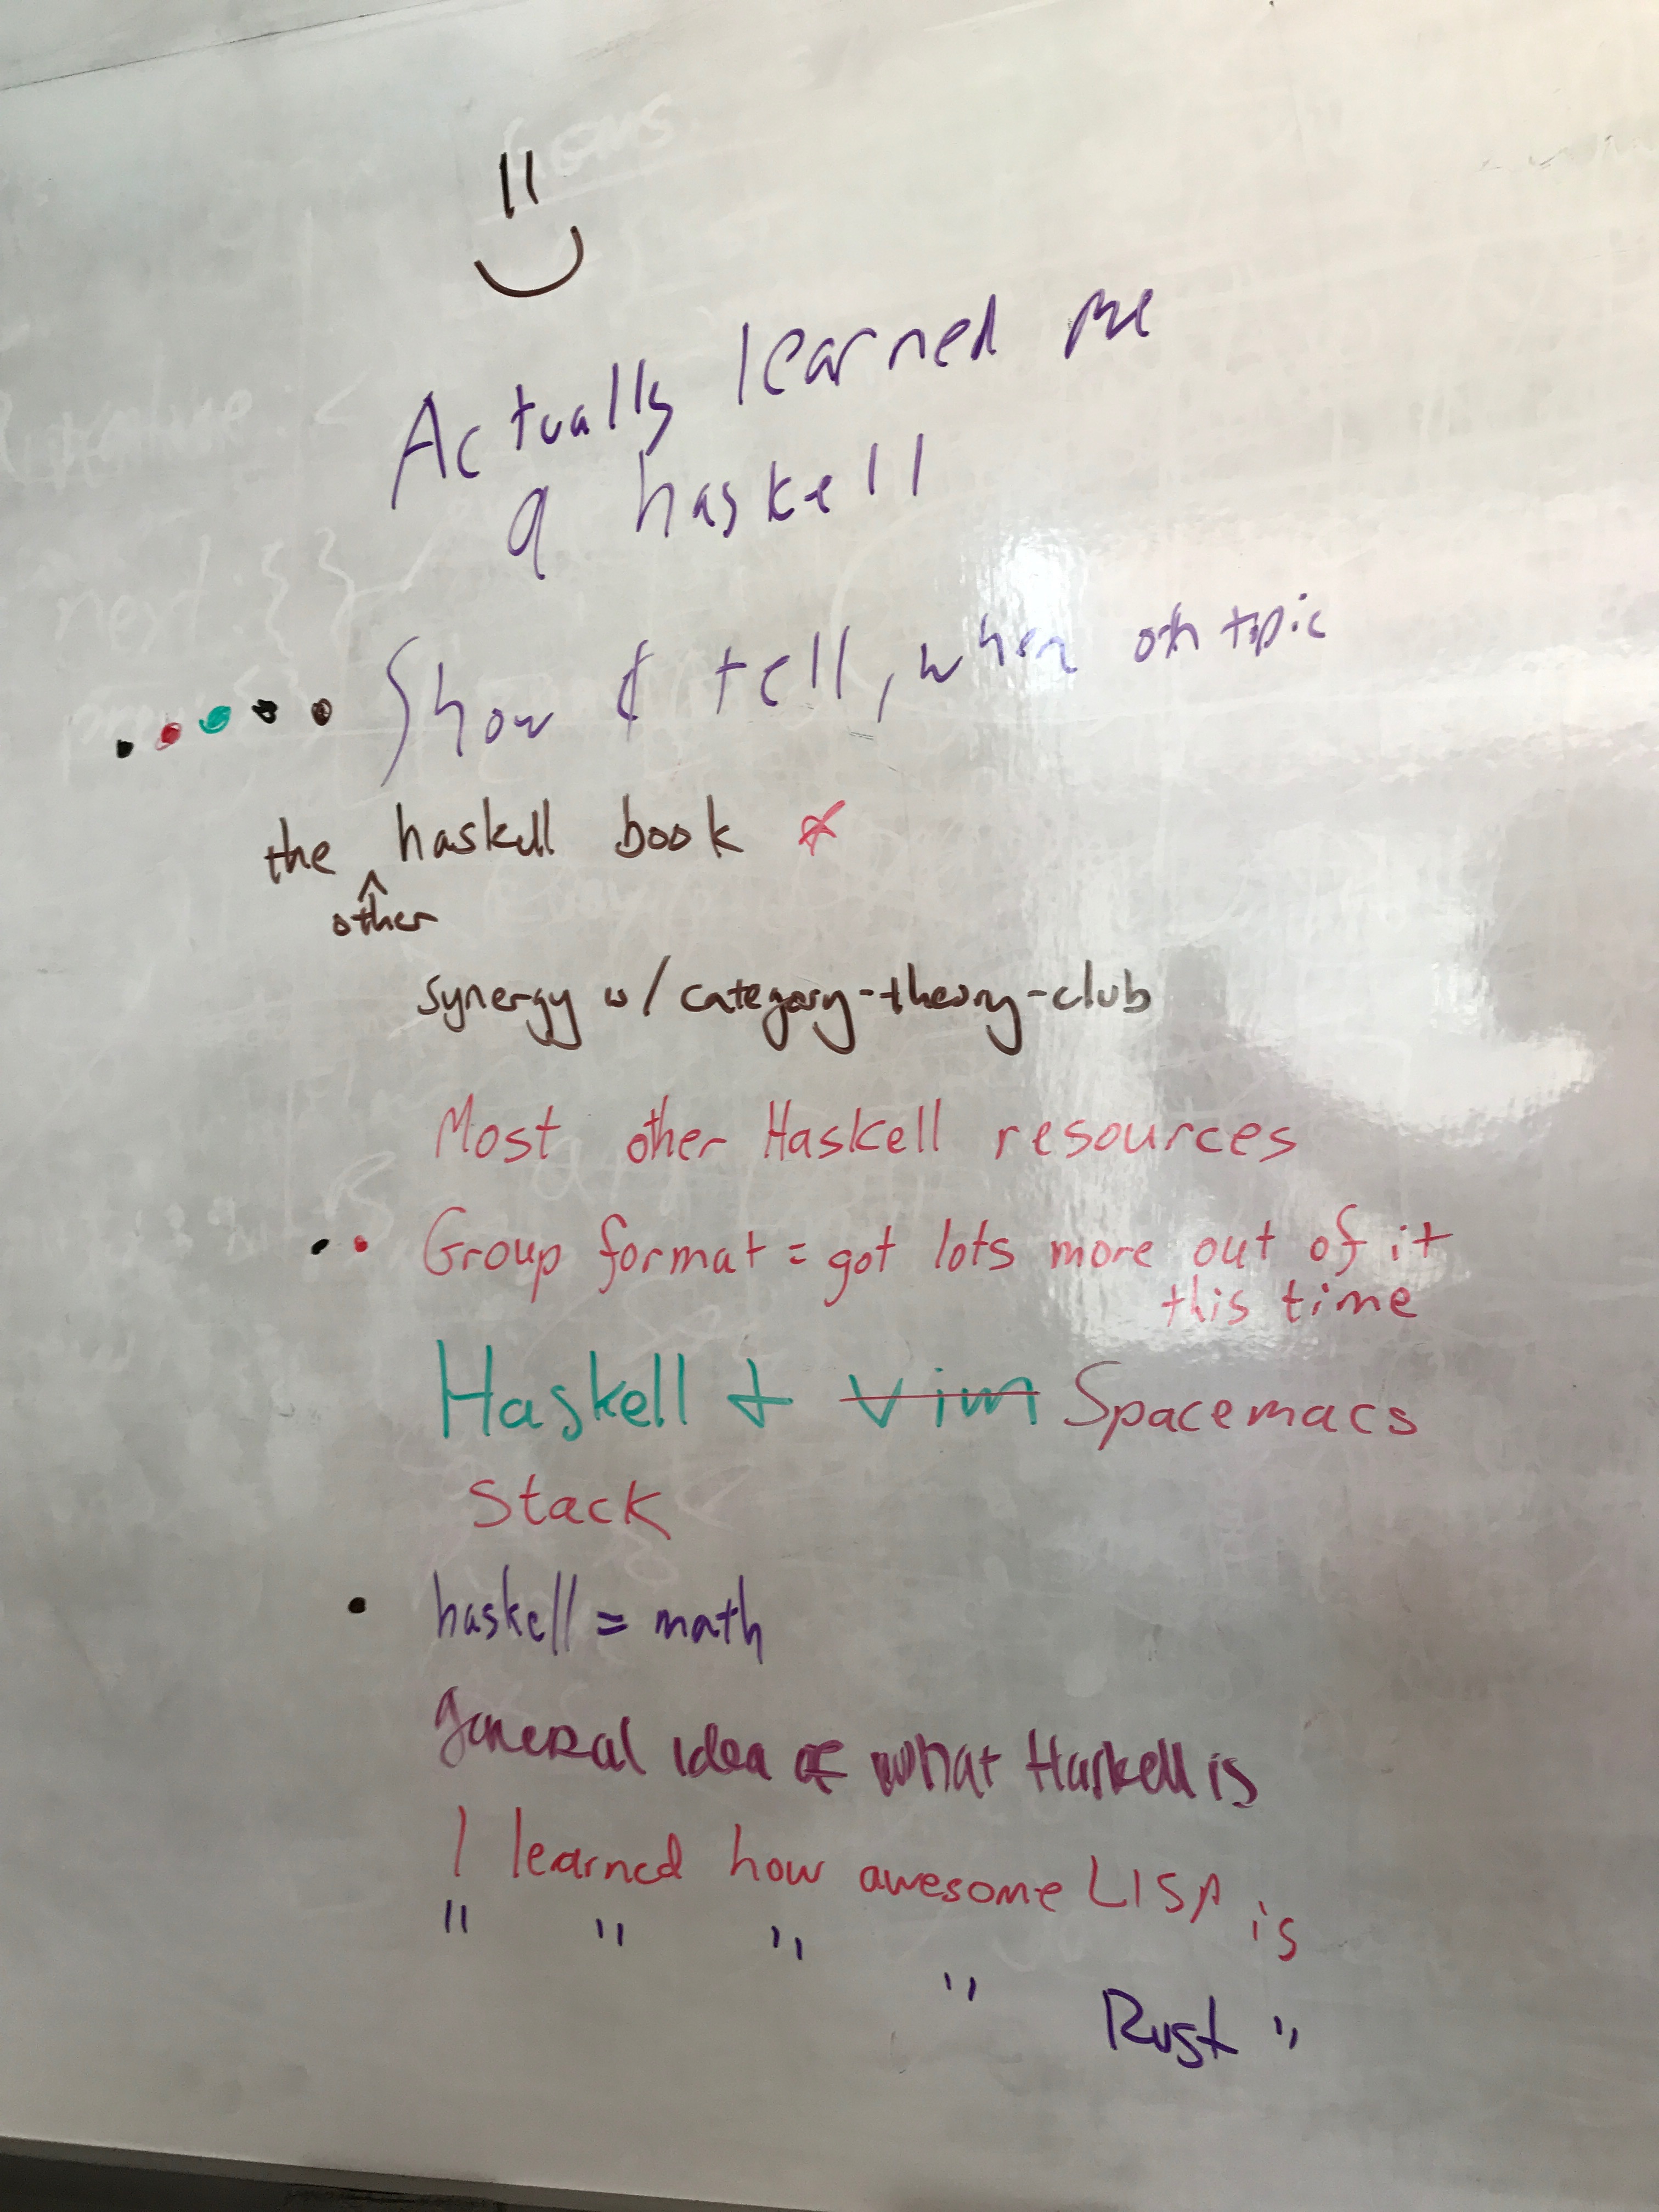 Actually learned me
a haskell
Show & tell, when on topic
the haskell book
other
synergy w/ category-theory-club
Most other Haskell resources
Group format = got lots more out of it
this time
Haskell + Vim Spacemacs
Stack
haskell = math
general idea of what Haskell is
I learned how awesome LISP is
" " " " Rust "